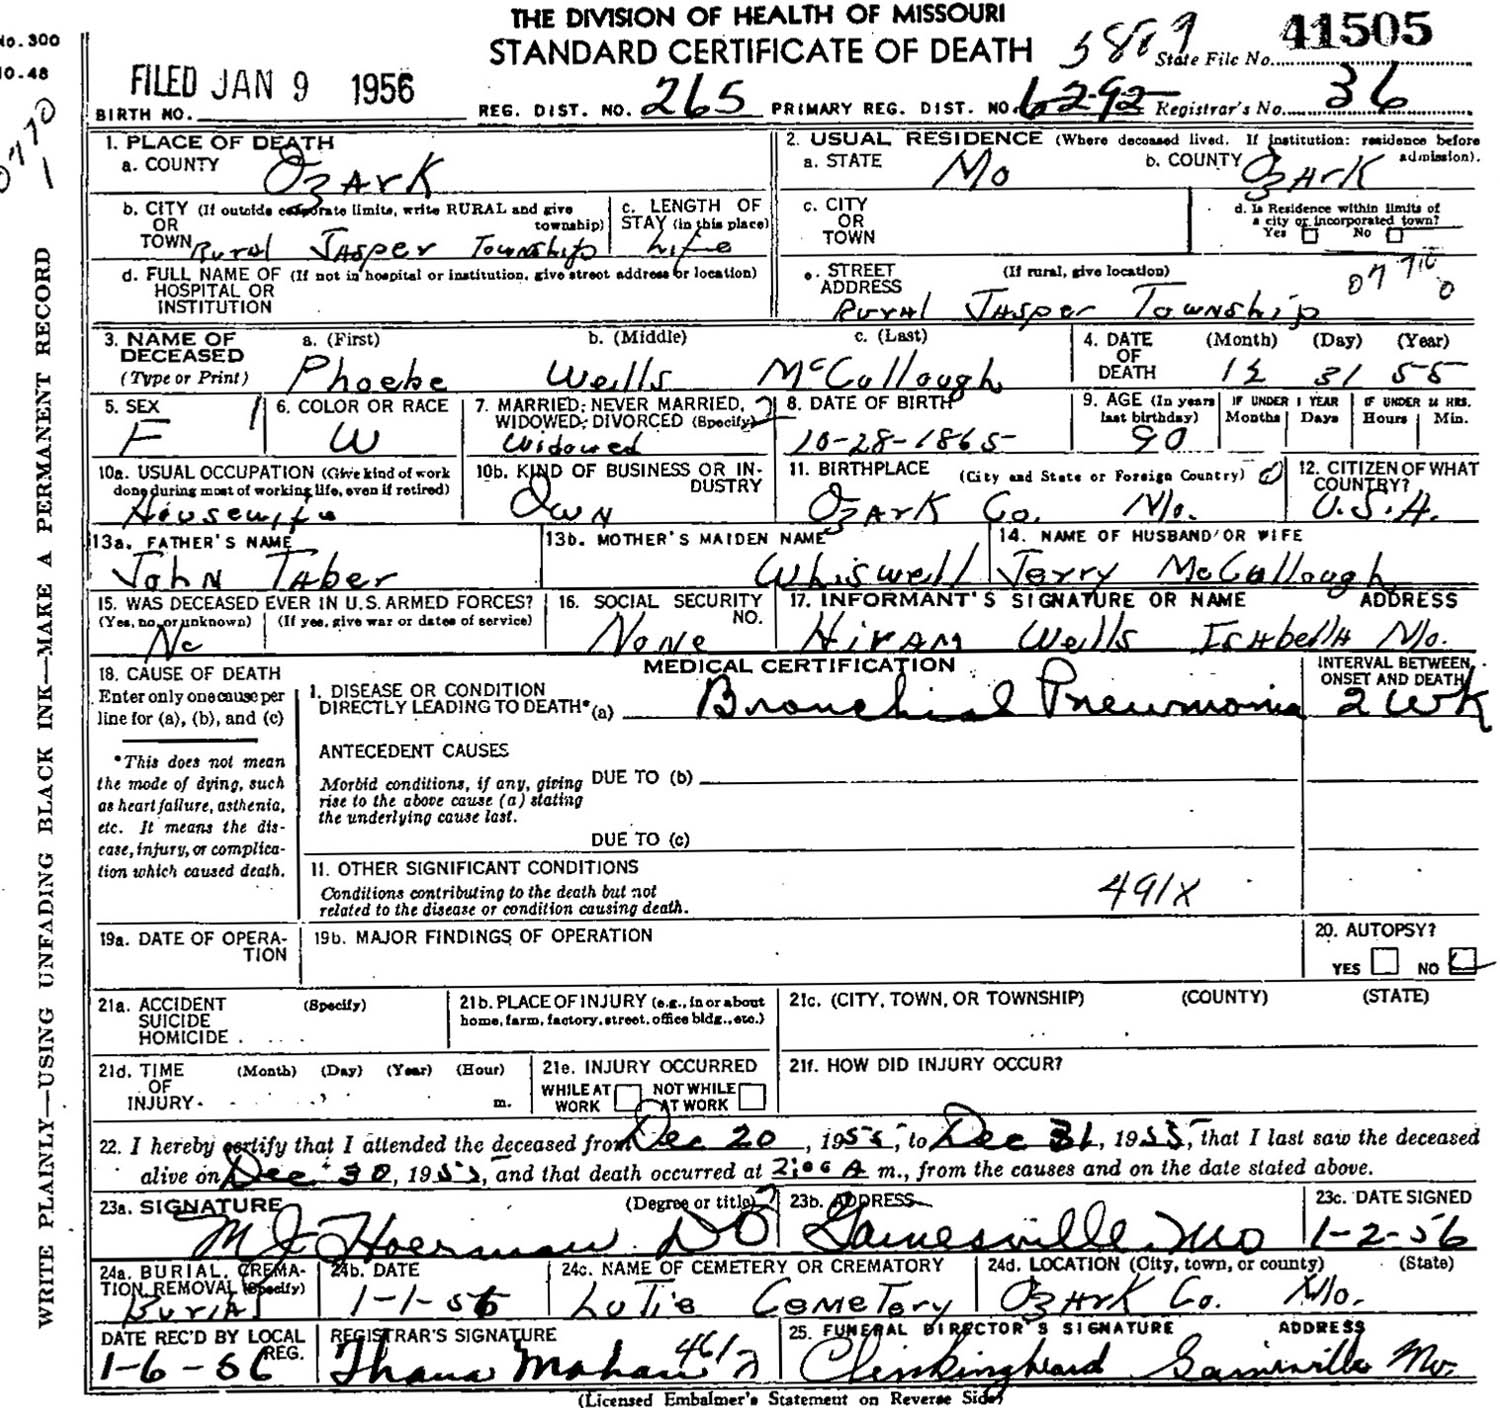 THE DIVISION OF HEALTH OF MISSOURI
STANDARD CERTIFICATE OF DEATH
No. 300
10.48
5889
State File No. 41505
FILED JAN 9 1956
BIRTH NO.
REG. DIST. NO. 265 PRIMARY REG. DIST. NO. 6292 Registrar's No. 36
WRITE PLAINLY—USING UNFADING BLACK INK—MAKE A PERMANENT RECORD
0770
1
1. PLACE OF DEATH
a. COUNTY Ozark
2. USUAL RESIDENCE (Where deceased lived. If institution: residence before admission).
a. STATE Mo b. COUNTY Ozark
b. CITY (If outside corporate limits, write RURAL and give township)
OR
TOWN Rural Jasper Township
c. LENGTH OF STAY (in this place)
Life
c. CITY
OR
TOWN
d. Is Residence within limits of a city or incorporated town?
Yes No
d. FULL NAME OF (If not in hospital or institution, give street address or location)
HOSPITAL OR
INSTITUTION
e. STREET ADDRESS (If rural, give location)
Rural Jasper Township
3. NAME OF DECEASED
(Type or Print)
a. (First) b. (Middle) c. (Last)
Phoebe Wells McCullough
4. DATE OF DEATH (Month) (Day) (Year)
12 31 55
5. SEX
F
6. COLOR OR RACE
W
7. MARRIED, NEVER MARRIED, WIDOWED, DIVORCED (Specify)
Widowed
8. DATE OF BIRTH
10-28-1865
9. AGE (In years last birthday)
90
IF UNDER 1 YEAR
Months Days
IF UNDER 24 HRS.
Hours Min.
10a. USUAL OCCUPATION (Give kind of work done during most of working life, even if retired)
Housewife
10b. KIND OF BUSINESS OR INDUSTRY
Own
11. BIRTHPLACE (City and State or Foreign Country)
Ozark Co. Mo.
12. CITIZEN OF WHAT COUNTRY?
U.S.A.
13a. FATHER'S NAME
John Taber
13b. MOTHER'S MAIDEN NAME
Whiswell
14. NAME OF HUSBAND OR WIFE
Jerry McCullough
15. WAS DECEASED EVER IN U.S. ARMED FORCES?
(Yes, no, or unknown) (If yes, give war or dates of service)
No
16. SOCIAL SECURITY NO.
None
17. INFORMANT'S SIGNATURE OR NAME ADDRESS
Hiram Wells Isabella Mo.
18. CAUSE OF DEATH
Enter only one cause per line for (a), (b), and (c)
*This does not mean the mode of dying, such as heart failure, asthenia, etc. It means the disease, injury, or complication which caused death.
MEDICAL CERTIFICATION
INTERVAL BETWEEN ONSET AND DEATH
I. DISEASE OR CONDITION
DIRECTLY LEADING TO DEATH* (a) Bronchial Pneumonia 2 wk
ANTECEDENT CAUSES
Morbid conditions, if any, giving rise to the above cause (a) stating the underlying cause last.
DUE TO (b)
DUE TO (c)
11. OTHER SIGNIFICANT CONDITIONS
Conditions contributing to the death but not related to the disease or condition causing death.
491X
19a. DATE OF OPERATION
19b. MAJOR FINDINGS OF OPERATION
20. AUTOPSY?
YES NO
21a. ACCIDENT (Specify)
SUICIDE
HOMICIDE
21b. PLACE OF INJURY (e.g., in or about home, farm, factory, street, office bldg., etc.)
21c. (CITY, TOWN, OR TOWNSHIP) (COUNTY) (STATE)
21d. TIME OF INJURY (Month) (Day) (Year) (Hour)
m.
21e. INJURY OCCURRED
WHILE AT WORK NOT WHILE AT WORK
21f. HOW DID INJURY OCCUR?
22. I hereby certify that I attended the deceased from Dec 20, 1955, to Dec 31, 1955, that I last saw the deceased
alive on Dec 30, 1955, and that death occurred at 2:00 A m., from the causes and on the date stated above.
23a. SIGNATURE (Degree or title)
M J Hoerman DO
23b. ADDRESS
Gainesville, Mo
23c. DATE SIGNED
1-2-56
24a. BURIAL, CREMATION REMOVAL (Specify)
Burial
24b. DATE
1-1-56
24c. NAME OF CEMETERY OR CREMATORY
Lutie Cemetery
24d. LOCATION (City, town, or county) (State)
Ozark Co. Mo.
DATE REC'D BY LOCAL REG.
1-6-56
REGISTRAR'S SIGNATURE
Thana Mahan
25. FUNERAL DIRECTOR'S SIGNATURE ADDRESS
Clinkingbeard Gainesville Mo.
(Licensed Embalmer's Statement on Reverse Side)